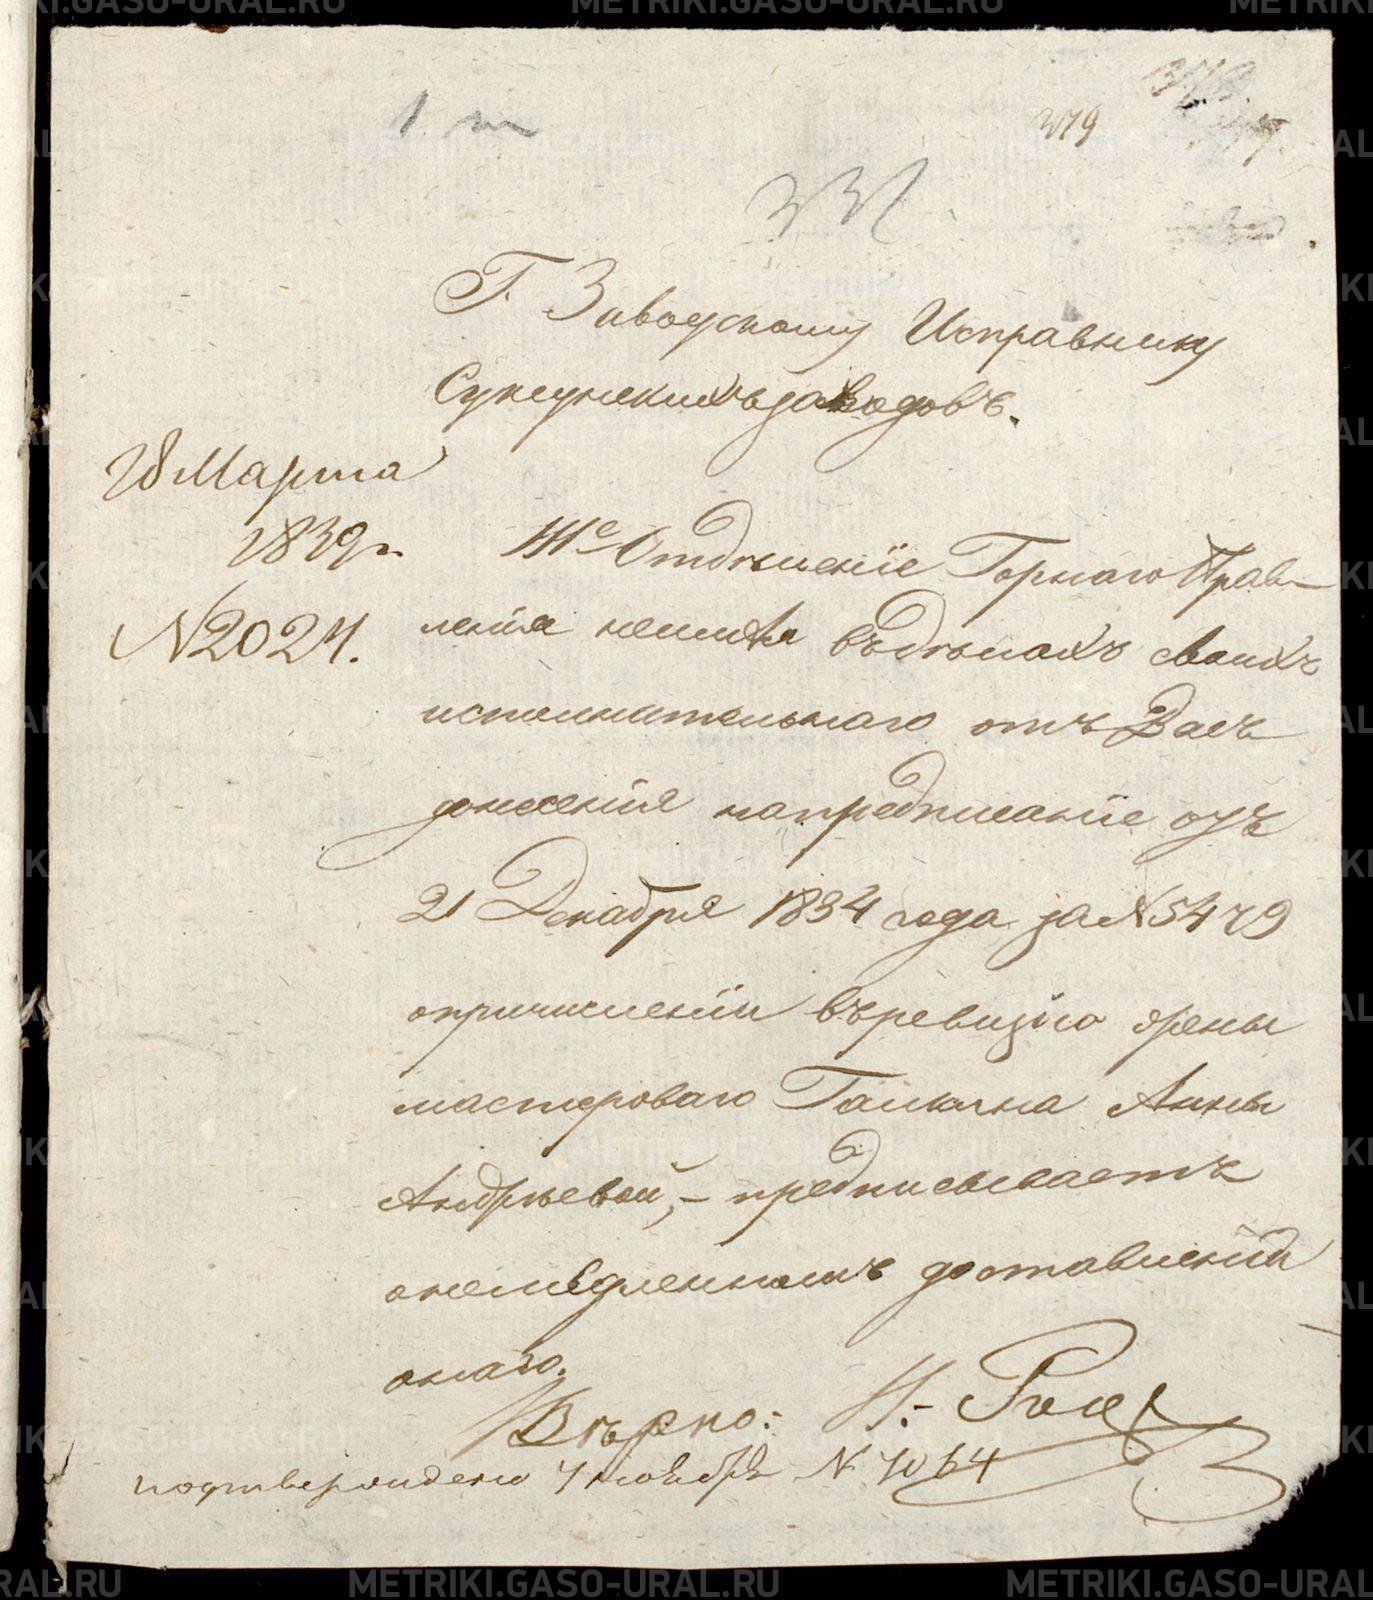 379
331
Г. Заводскому Исправнику
Суксунскихъ заводовъ.
18 Марта
1839 г.
№ 2024.
IIIе Отдѣленіе Горнаго Прав-
ленія неимѣя въ дѣлахъ своихъ
исполнительнаго отъ Васъ
донесенія на предписаніе отъ
21 Декабря 1834 года за № 5479
о причисленіи въ ревизію жены
мастероваго Галкина Анны
Андрѣевой, - предписываетъ
о немѣдленномъ доставленіи
онаго.
Вѣрно:
подтверждено 7 ноября № 7064
METRIKI.GASO-URAL.RU